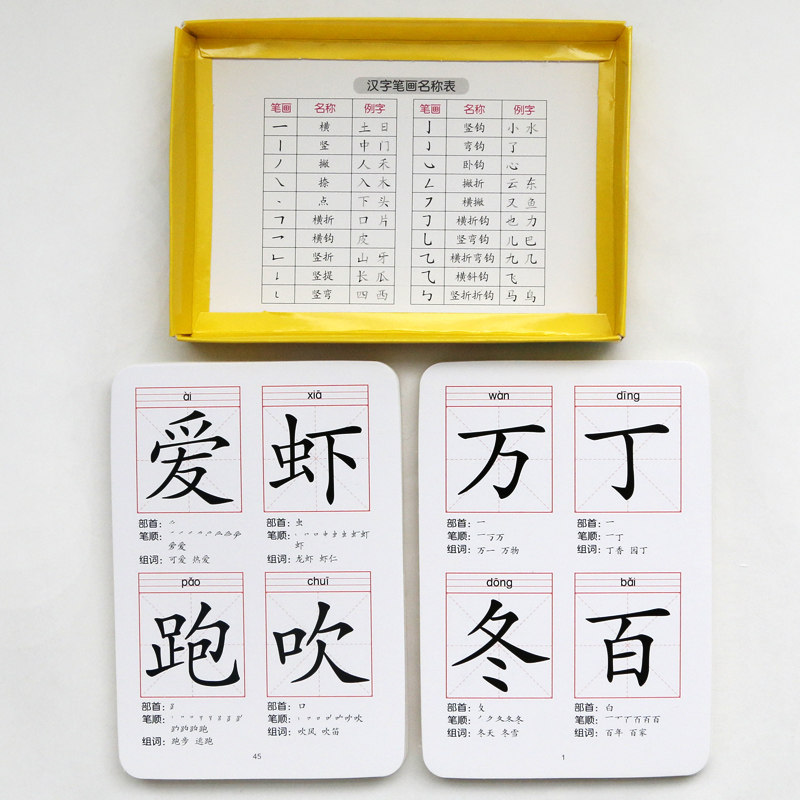 汉字笔画名称表
笔画 名称 例字 笔画 名称 例字
一 横 土 日 亅 竖钩 小 水
丨 竖 中 门 ㇁ 弯钩 了
丿 撇 人 禾 ㇃ 卧钩 心
㇏ 捺 入 木 ㇜ 撇折 云 东
丶 点 下 头 ㇇ 横撇 又 鱼
𠃍 横折 口 片 ㇆ 横折钩 也 力
㇖ 横钩 皮 乚 竖弯钩 儿 巴
㇗ 竖折 山 牙 ㇈ 横折弯钩 九 几
㇙ 竖提 长 瓜 ⺄ 横斜钩 飞
㇄ 竖弯 四 西 ㇉ 竖折折钩 马 乌
ài
爱
部首：
笔顺：
组词：可爱 热爱
xiā
虾
部首：虫
笔顺：
组词：龙虾 虾仁
pǎo
跑
部首：
笔顺：
组词：跑步 逃跑
chuī
吹
部首：口
笔顺：
组词：吹风 吹笛
45
wàn
万
部首：一
笔顺：一丆万
组词：万一 万物
dīng
丁
部首：一
笔顺：一丁
组词：丁香 园丁
dōng
冬
部首：夂
笔顺：丿ク夂冬冬
组词：冬天 冬雪
bǎi
百
部首：白
笔顺：
组词：百年 百家
1